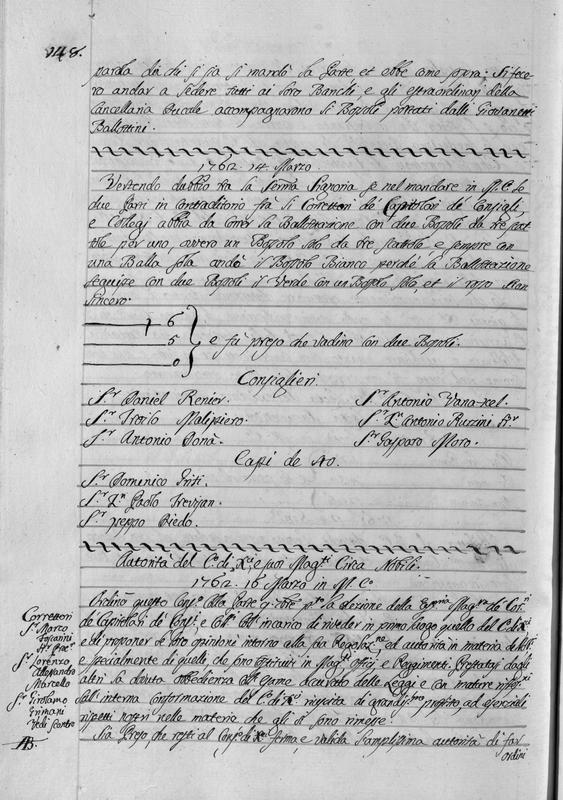 148.
parola di chi si sia si mandò la Parte et ebbe come sopra: Si fece-
ro andar a Sedere tutti ai loro Banchi, e gli estraordinari della
Cancellaria Ducale accompagnarono li Bossoli portati dalli Giovanetti
Ballottini.
1762. 14. Marzo.
Vertendo dubbio tra la Serma Signoria se nel mandare in M. C. le
due Parti in contraditorio fra li Correttori de Capitolari de Consigli,
e Collegi abbia da correr la Ballottazione con due Bossoli da tre
per uno, ovvero un Bossolo solo da tre e sempre con
una Balla sola andò il Bossolo Bianco perchè la Ballottazione
seguisse con due Bossoli il Verde con un Bossolo solo, et il rosso non
sincero.
6
5 e fù preso che vadino con due Bossoli.
0
Consiglieri
Sr Daniel Renier. Sr Antonio
Sr Troilo Malipiero. Sr Antonio Ruzzini
Sr Antonio Donà. Sr Gasparo Moro.
Cappi de 40.
Sr Domenico
Sr Paolo Trevisan.
Sr
Autorità del C. di X. e suoi Magti Circa Nobili.
1762. 16 Marzo in M. C.
Correttori
Sr Marco
Foscarini
Sr Lorenzo
Alessandro
Marcello
Sr Girolamo
Grimani
Ordinò questo Consº colla Parte la elezione della Magra de Corri
de Capitolari di Consi, e Colli all incarico di riveder in primo luogo quello del C. di X
e di proponer le loro opinioni intorno alla sua ed autorità in materia de
e specialmente di quelli, che sono in Magti, officj, e Reggimenti. Prestatasi dagli
altri la dovuta obbedienza esame accurato delle Leggi, e con mature
sull interna conformazione del C. di X. rispetta di profitto, ad essenziali
rispetti nostri nelle materie che gli si sono rimesse.
Sia Preso, che resti al Conso di X. ferma, e valida l'amplissima autorità di far
ordini